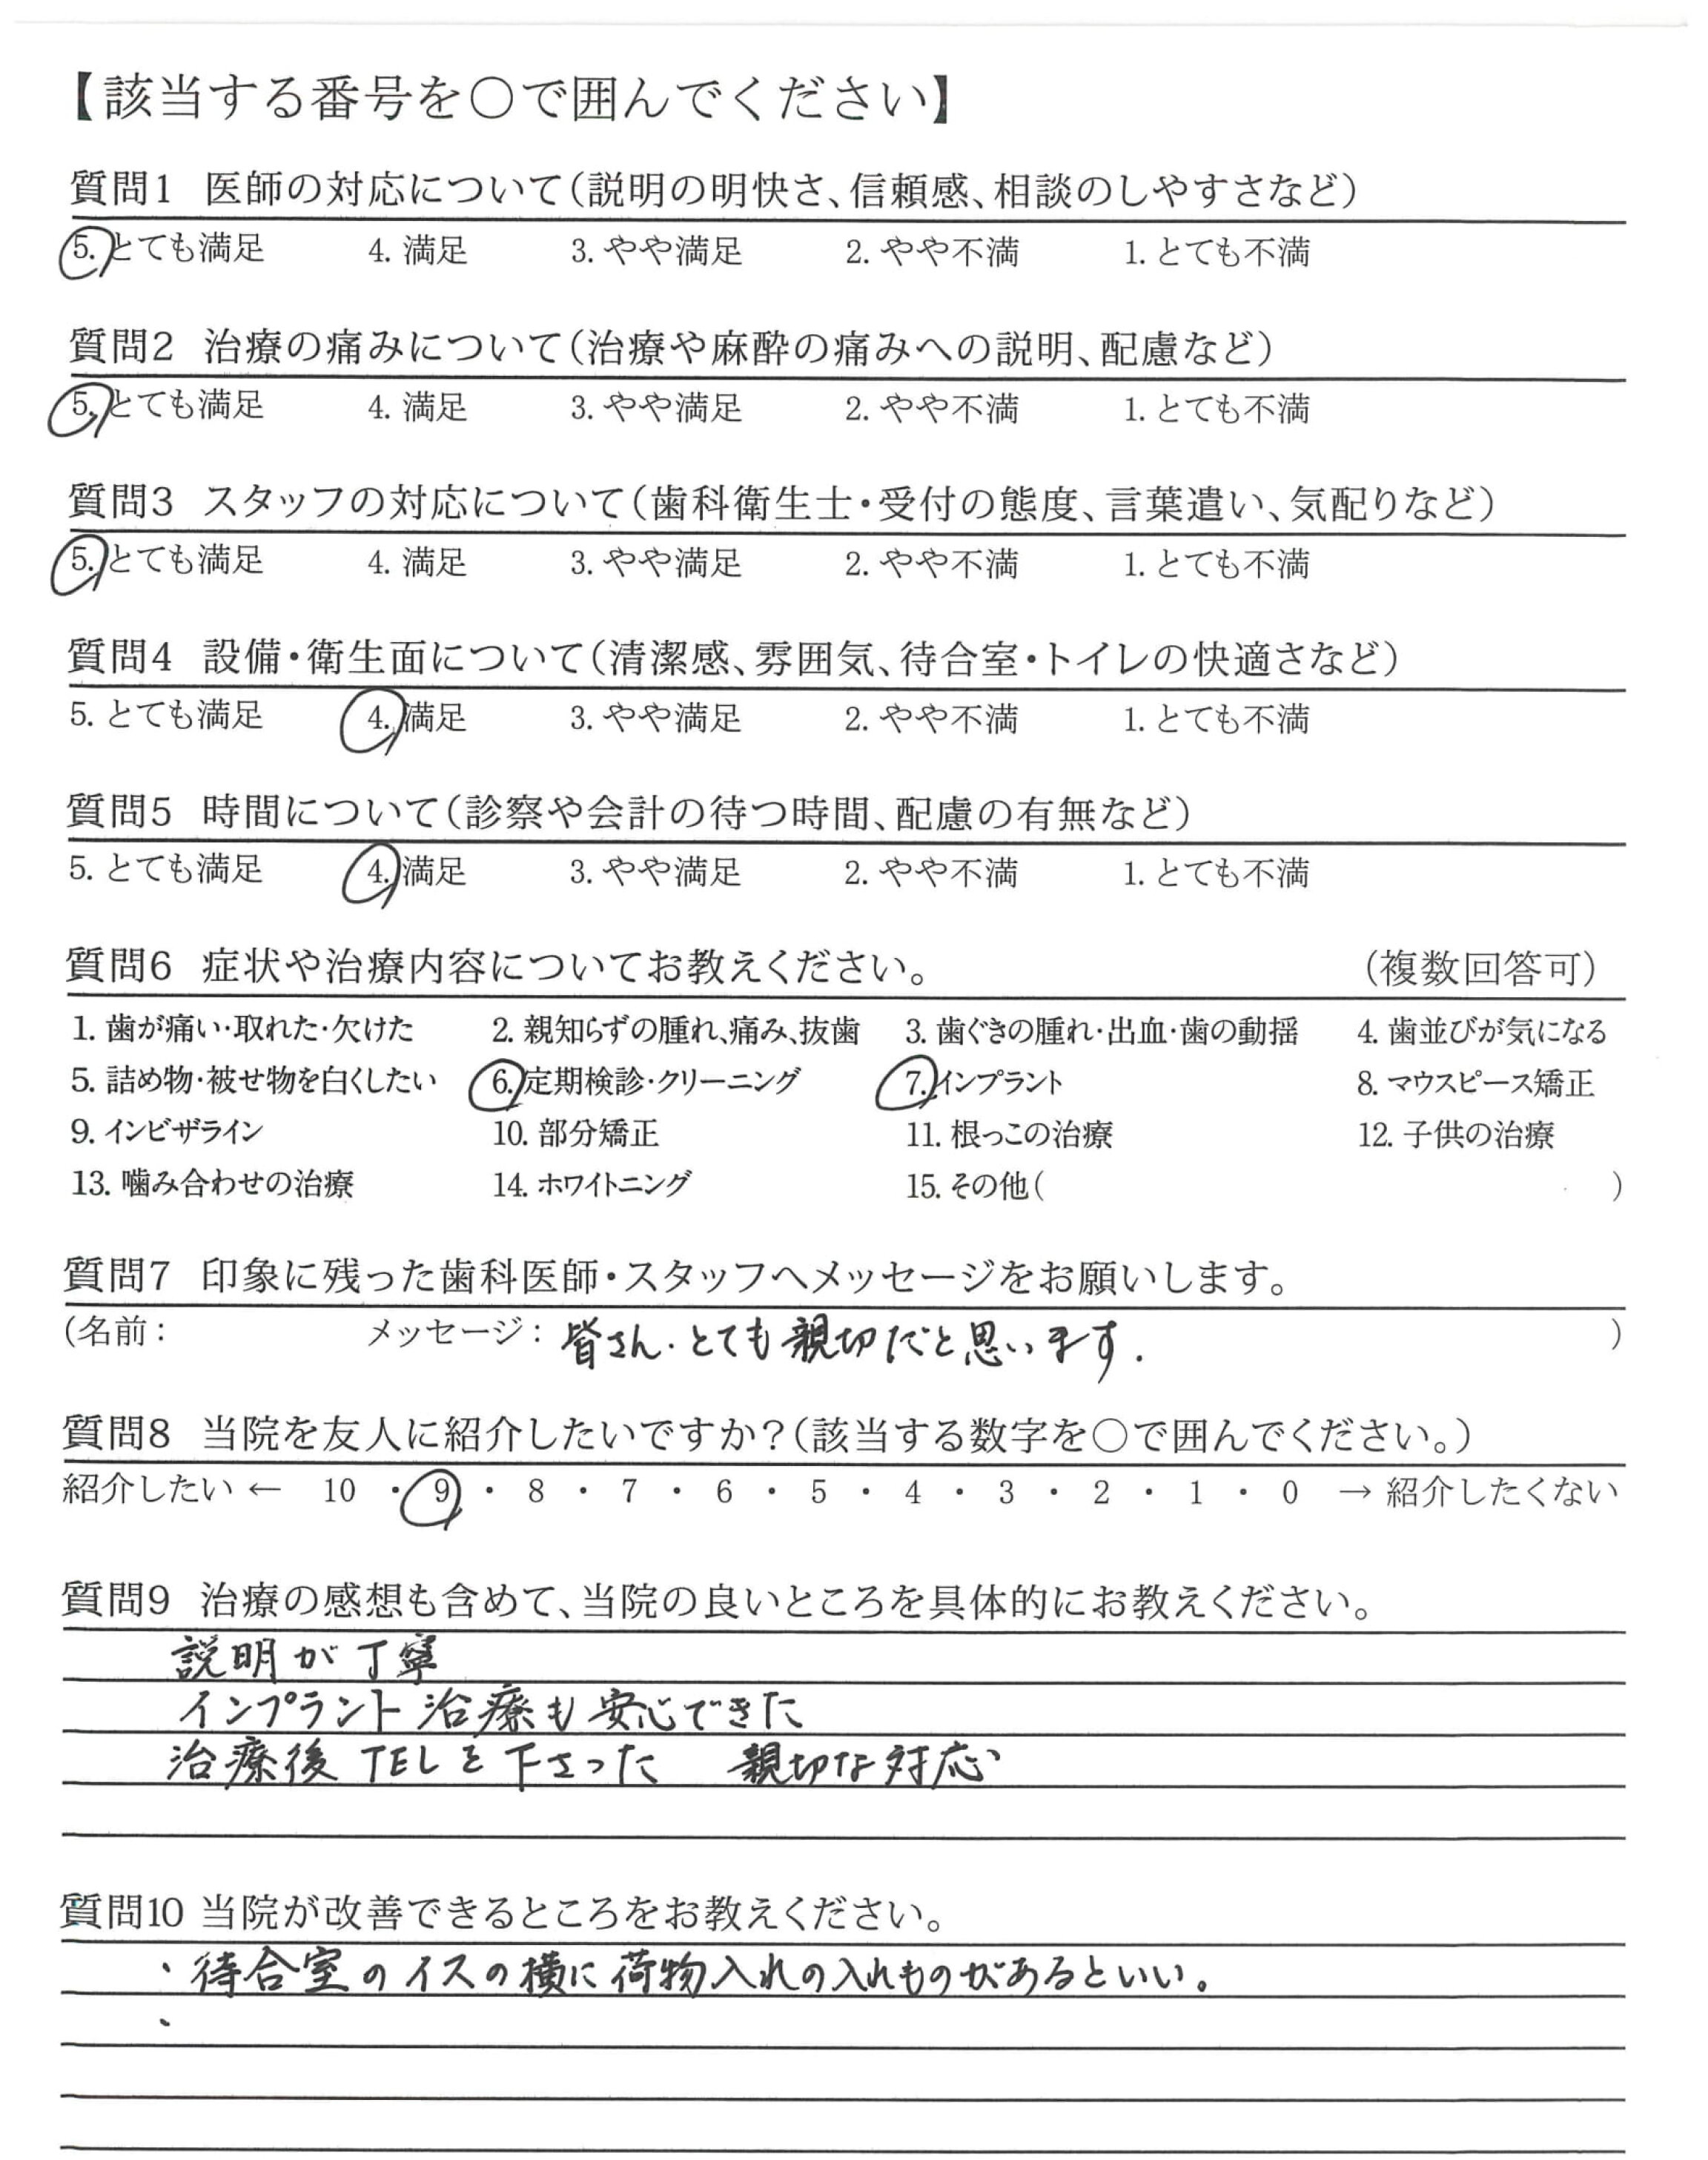 【該当する番号を○で囲んでください】
質問1 医師の対応について(説明の明快さ、信頼感、相談のしやすさなど)
5. とても満足 4. 満足 3. やや満足 2. やや不満 1. とても不満
質問2 治療の痛みについて(治療や麻酔の痛みへの説明、配慮など)
5. とても満足 4. 満足 3. やや満足 2. やや不満 1. とても不満
質問3 スタッフの対応について(歯科衛生士・受付の態度、言葉遣い、気配りなど)
5. とても満足 4. 満足 3. やや満足 2. やや不満 1. とても不満
質問4 設備・衛生面について(清潔感、雰囲気、待合室・トイレの快適さなど)
5. とても満足 4. 満足 3. やや満足 2. やや不満 1. とても不満
質問5 時間について(診察や会計の待つ時間、配慮の有無など)
5. とても満足 4. 満足 3. やや満足 2. やや不満 1. とても不満
質問6 症状や治療内容についてお教えください。 (複数回答可)
1. 歯が痛い・取れた・欠けた 2. 親知らずの腫れ、痛み、抜歯 3. 歯ぐきの腫れ・出血・歯の動揺 4. 歯並びが気になる
5. 詰め物・被せ物を白くしたい 6. 定期検診・クリーニング 7. インプラント 8. マウスピース矯正
9. インビザライン 10. 部分矯正 11. 根っこの治療 12. 子供の治療
13. 噛み合わせの治療 14. ホワイトニング 15. その他( )
質問7 印象に残った歯科医師・スタッフへメッセージをお願いします。
(名前: メッセージ: 皆さん.とても親切だと思います. )
質問8 当院を友人に紹介したいですか?(該当する数字を○で囲んでください。)
紹介したい ← 10 ・ 9 ・ 8 ・ 7 ・ 6 ・ 5 ・ 4 ・ 3 ・ 2 ・ 1 ・ 0 → 紹介したくない
質問9 治療の感想も含めて、当院の良いところを具体的にお教えください。
説明が丁寧
インプラント治療も安心できた
治療後TELを下さった 親切な対応
質問10 当院が改善できるところをお教えください。
・待合室のイスの横に荷物入れの入れものがあるといい。
・